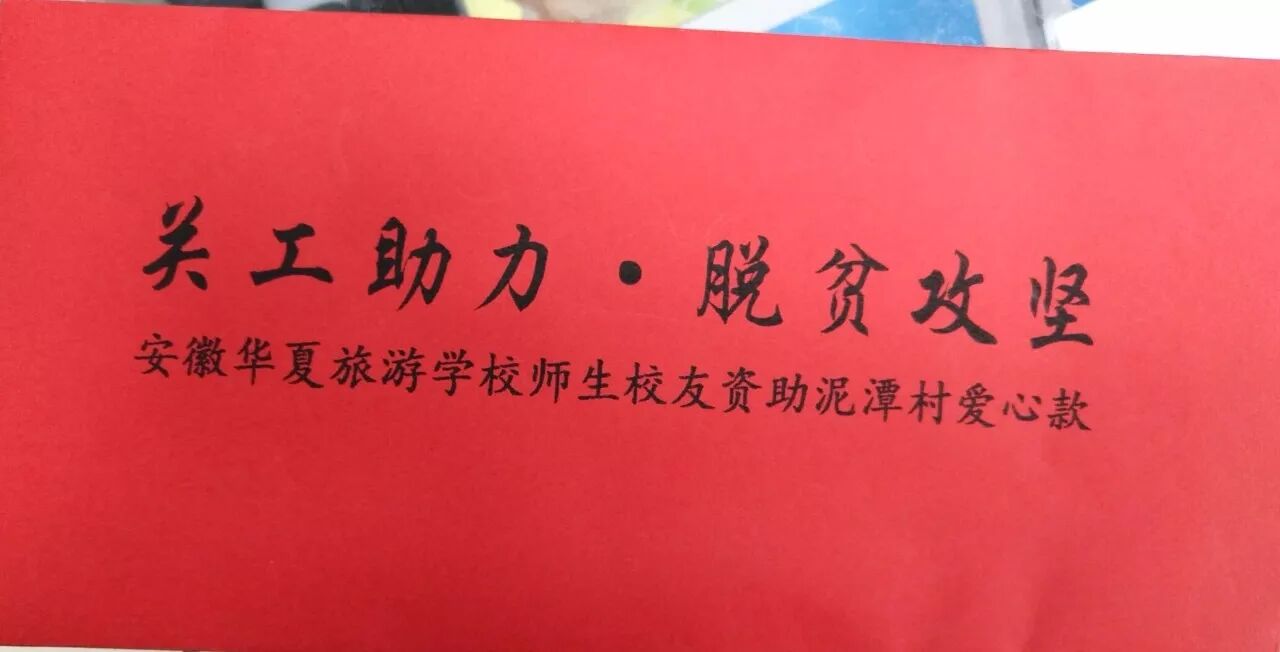 关工助力·脱贫攻坚
安徽华夏旅游学校师生校友资助泥潭村爱心款